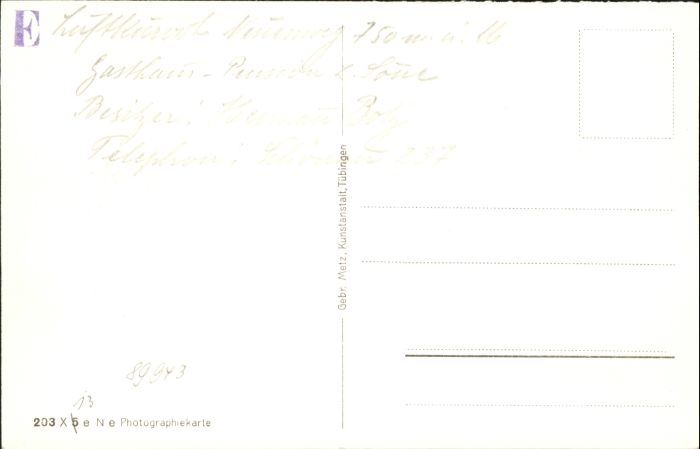 E
Luftkurort Neuenweg 750 m. ü. M
Gasthaus - Pension z. Löwe
Besitzer: Herman
Telephon: Schönau 237
Gebr. Metz, Kunstanstalt, Tübingen
89943
13
203 X 5 e N e Photographiekarte